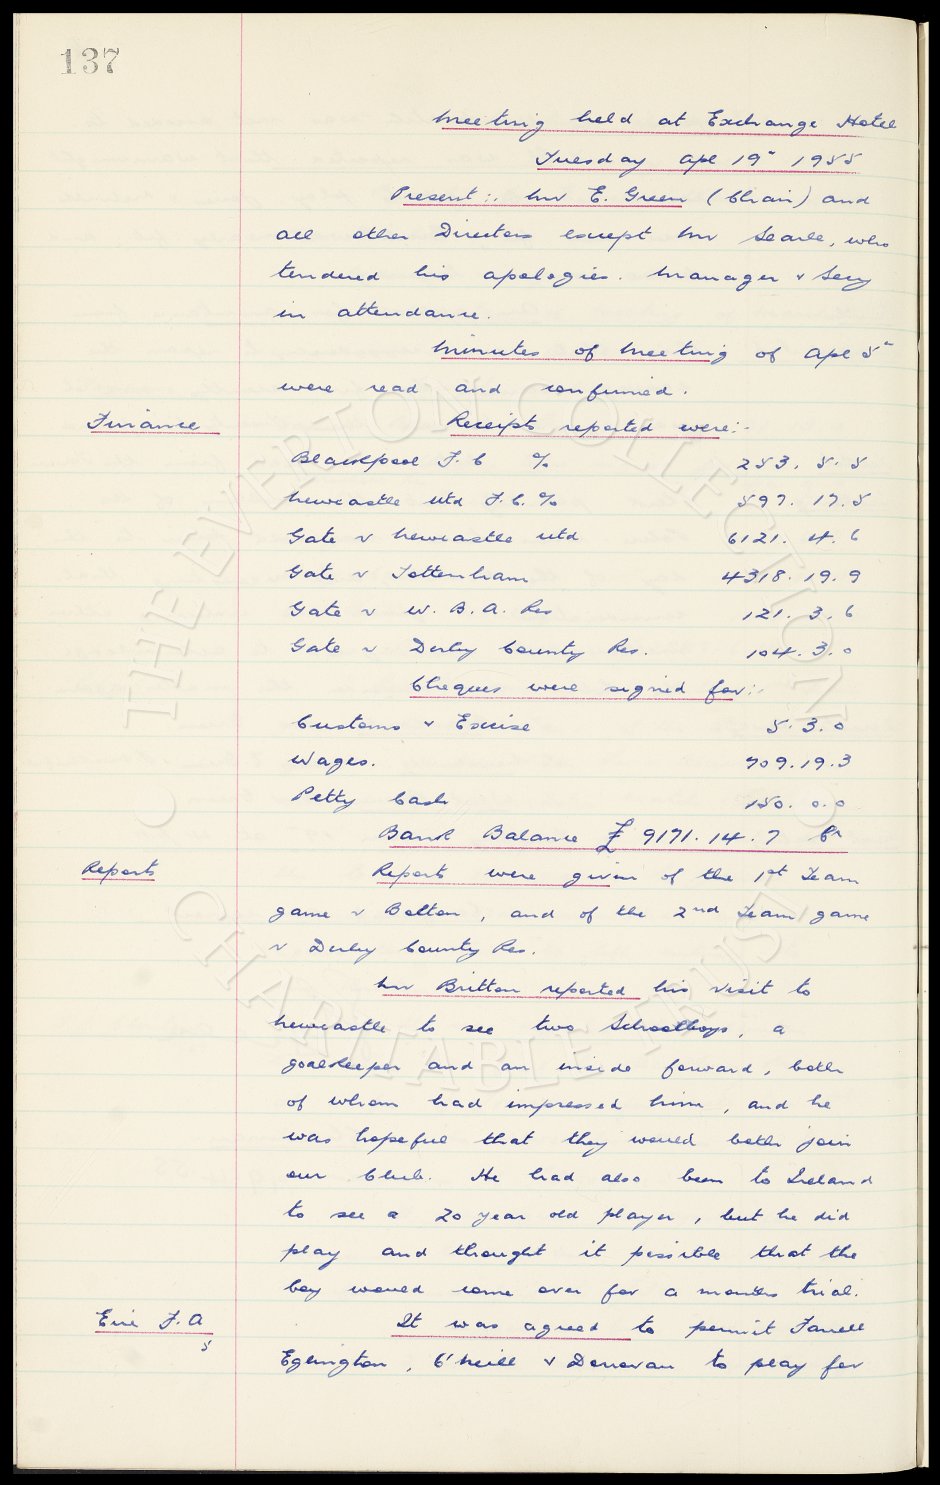 137
Meeting held at Exchange Hotel
Tuesday Apl 19" 1955
Present:. Mr E. Green (Chair) and
all other Directors except Mr Searle, who
tendered his apologies. Manager & Secy
in attendance.
Minutes of Meeting of Apl 5"
were read and confirmed.
Finance
Receipts reported were:-
Blackpool F.C % 253. 5. 5
Newcastle Utd F.C. % 597. 17. 5
Gate v Newcastle Utd 6121. 4. 6
Gate v Tottenham 4318. 19. 9
Gate v W. B. A. Res 121. 3. 6
Gate v Derby County Res. 104. 3. 0
Cheques were signed for:-
Customs & Excise 5. 3. 0
Wages. 709. 19. 3
Petty Cash 150. 0. 0
Bank Balance £ 9171. 14. 7 Cr
Reports
Reports were given of the 1st Team
game v Bolton, and of the 2nd Team game
v Derby County Res.
Mr Britton reported his visit to
Newcastle to see two Schoolboys, a
goalkeeper and an inside forward, both
of whom had impressed him, and he
was hopeful that they would both join
our Club. He had also been to Ireland
to see a 20 year old player, but he did
play and thought it possible that the
boy would come over for a months trial.
Eire F.A
5
It was agreed to permit Farrell
Eglington, O'Neill & Donovan to play for
© THE EVERTON COLLECTION CHARITABLE TRUST